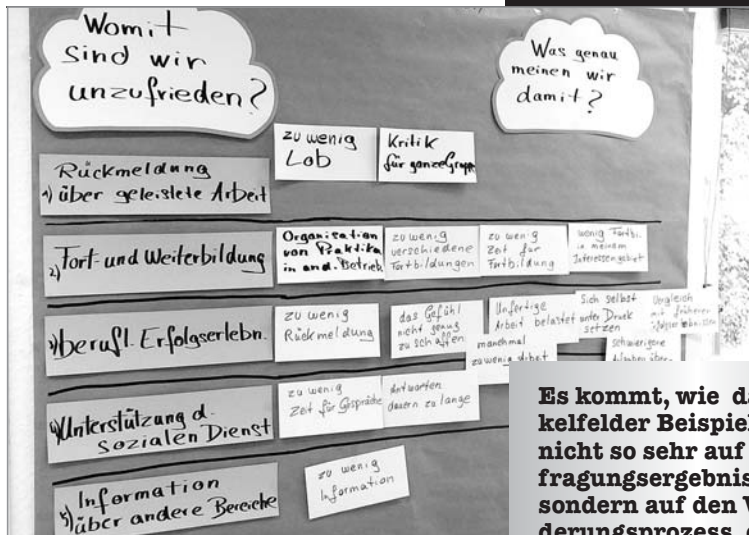 Womit
sind wir
unzufrieden?
Was genau
meinen wir
damit?
Rückmeldung
1) über geleistete Arbeit
zu wenig
Lob
Kritik
für ganze Gruppe
2) Fort- und Weiterbildung
Organisation
von Praktika
in and. Betrieb
zu wenig
verschiedene
Fortbildungen
zu wenig
Zeit für
Fortbildung
wenig Fortbi.
in meinem
Interessengebiet
3) berufl. Erfolgserlebn.
zu wenig
Rückmeldung
das Gefühl
nicht genug
zu schaffen
Unfertige
Arbeit belastet
manchmal
zu wenig Arbeit
Sich selbst
unter Druck
setzen
schwierigere
Vergleich
mit früheren
4) Unterstützung d.
sozialen Dienst
zu wenig
Zeit für Gespräche
Antworten
dauern zu lange
5) Information
über andere Bereiche
zu wenig
Information
Es kommt, wie da
kelfelder Beispiel
nicht so sehr auf
fragungsergebnis
sondern auf den V
derungsprozess